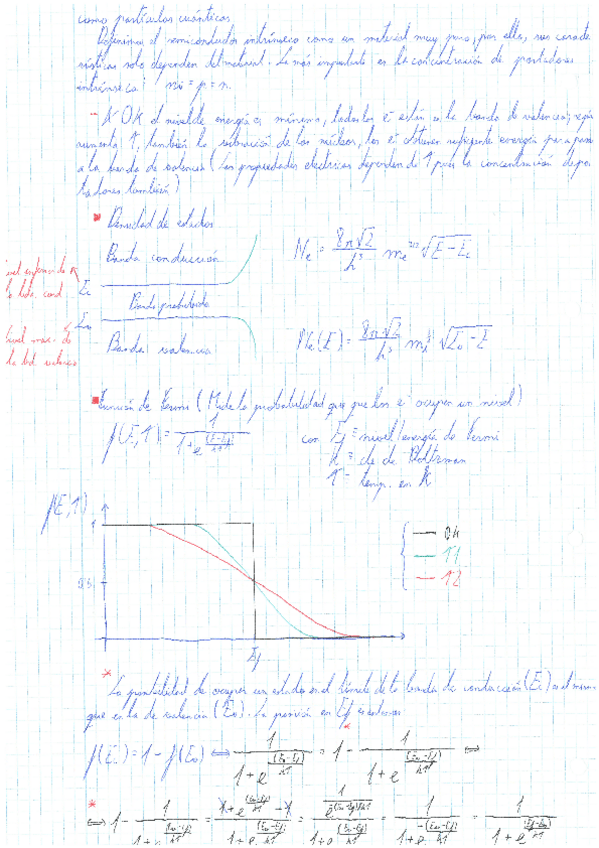 como partículas cuánticas.
Definimos el semiconductor intrínseco como un material muy puro, por ello, sus caracte
rísticas solo dependen del material. Lo más importante es la concentración de portadores
intrínseca: ni = p = n.
- A 0K el nivel de energía es mínimo, todos los e⁻ están en la banda de valencia, según
aumenta T, también la vibración de los núcleos, los e⁻ obtienen suficiente energía para pasar
a la banda de valencia (Las propiedades electricas dependen de T pues la concentración de por
tadores también)
Densidad de estados
Banda conducción
Ne = 8π√2/h³ me^3/2 √E-Ec
nivel inferior de
la bda. cond.
Ec
Banda prohibida
Ev
nivel max. de
la bd. valencia
Banda valencia
Nh(E) = 8π√2/h³ mh^3/2 √Ev-E
Función de Fermi (Mide la probabilidad que que los e⁻ ocupen un nivel)
f(E,T) = 1/(1+e^((E-Ef)/kT))
con Ef ≡ nivel/energía de Fermi
k ≡ cte de Boltzman
T = temp. en K
f(E,T)
1
0,5
Ef
0K
T1
T2
* La probabilidad de ocupar un estado en el límite de la banda de conducción (Ec) es el mismo
que en la de valencia (Ev). La posición en Ef
f(Ec) = 1 - f(Ev) ⟺ 1/(1+e^((Ec-Ef)/kT)) = 1 - 1/(1+e^((Ev-Ef)/kT)) ⟺
* ⟺ 1 - 1/(1+e^((Ev-Ef)/kT)) = (1+e^((Ev-Ef)/kT) - 1)/(1+e^((Ev-Ef)/kT)) = = 1/(1+e^((Ef-Ev)/kT))